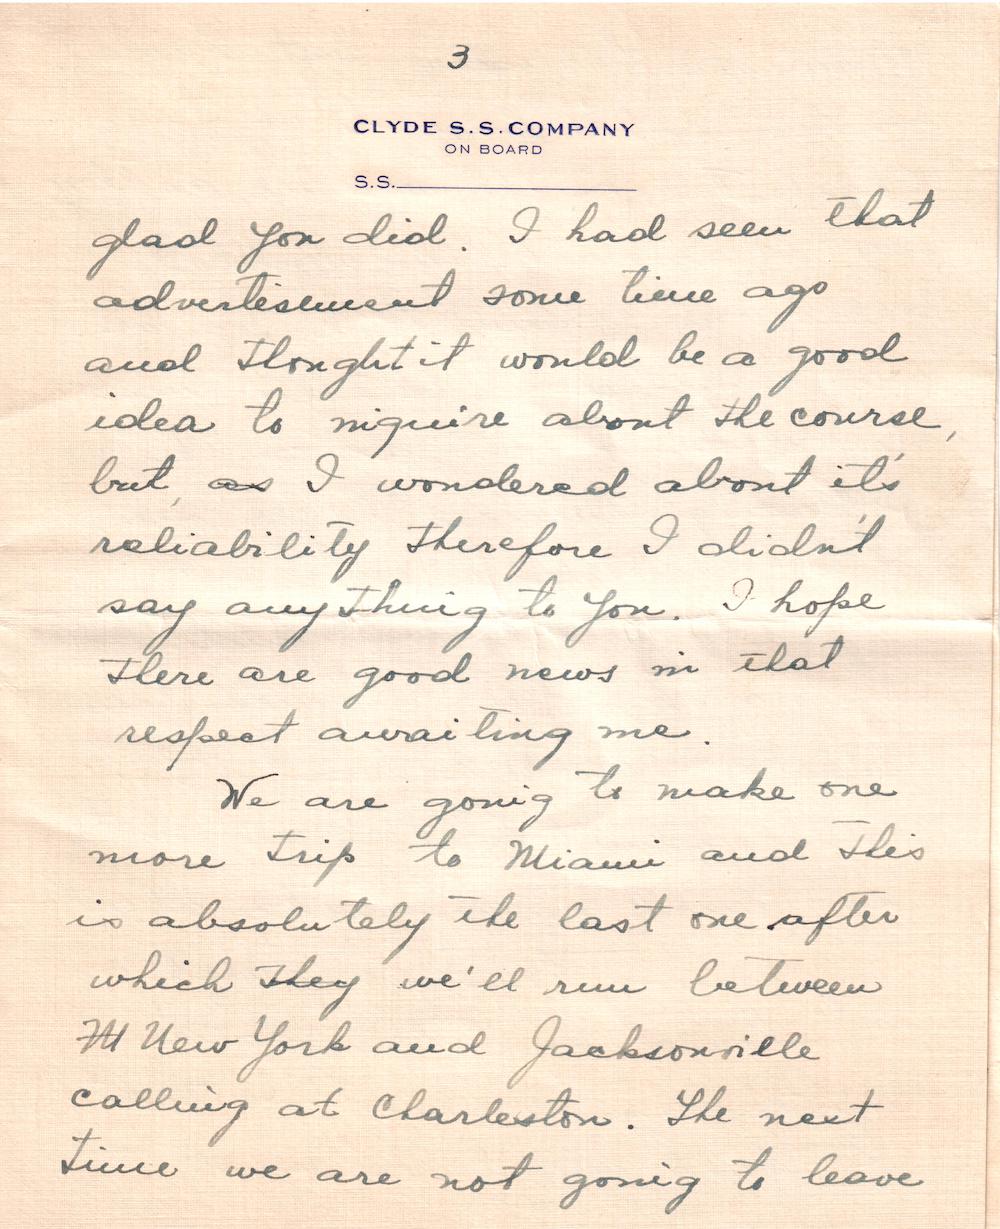 3
CLYDE S.S. COMPANY
ON BOARD
S.S.
glad you did. I had seen that
advertisement some time ago
and thought it would be a good
idea to inquire about the course,
but, as I wondered about it's
reliability therefore I didn't
say anything to you. I hope
there are good news in that
respect awaiting me.
We are going to make one
more trip to Miami and this
is absolutely the last one after
which they we'll run between
New York and Jacksonville
calling at Charleston. The next
time we are not going to leave